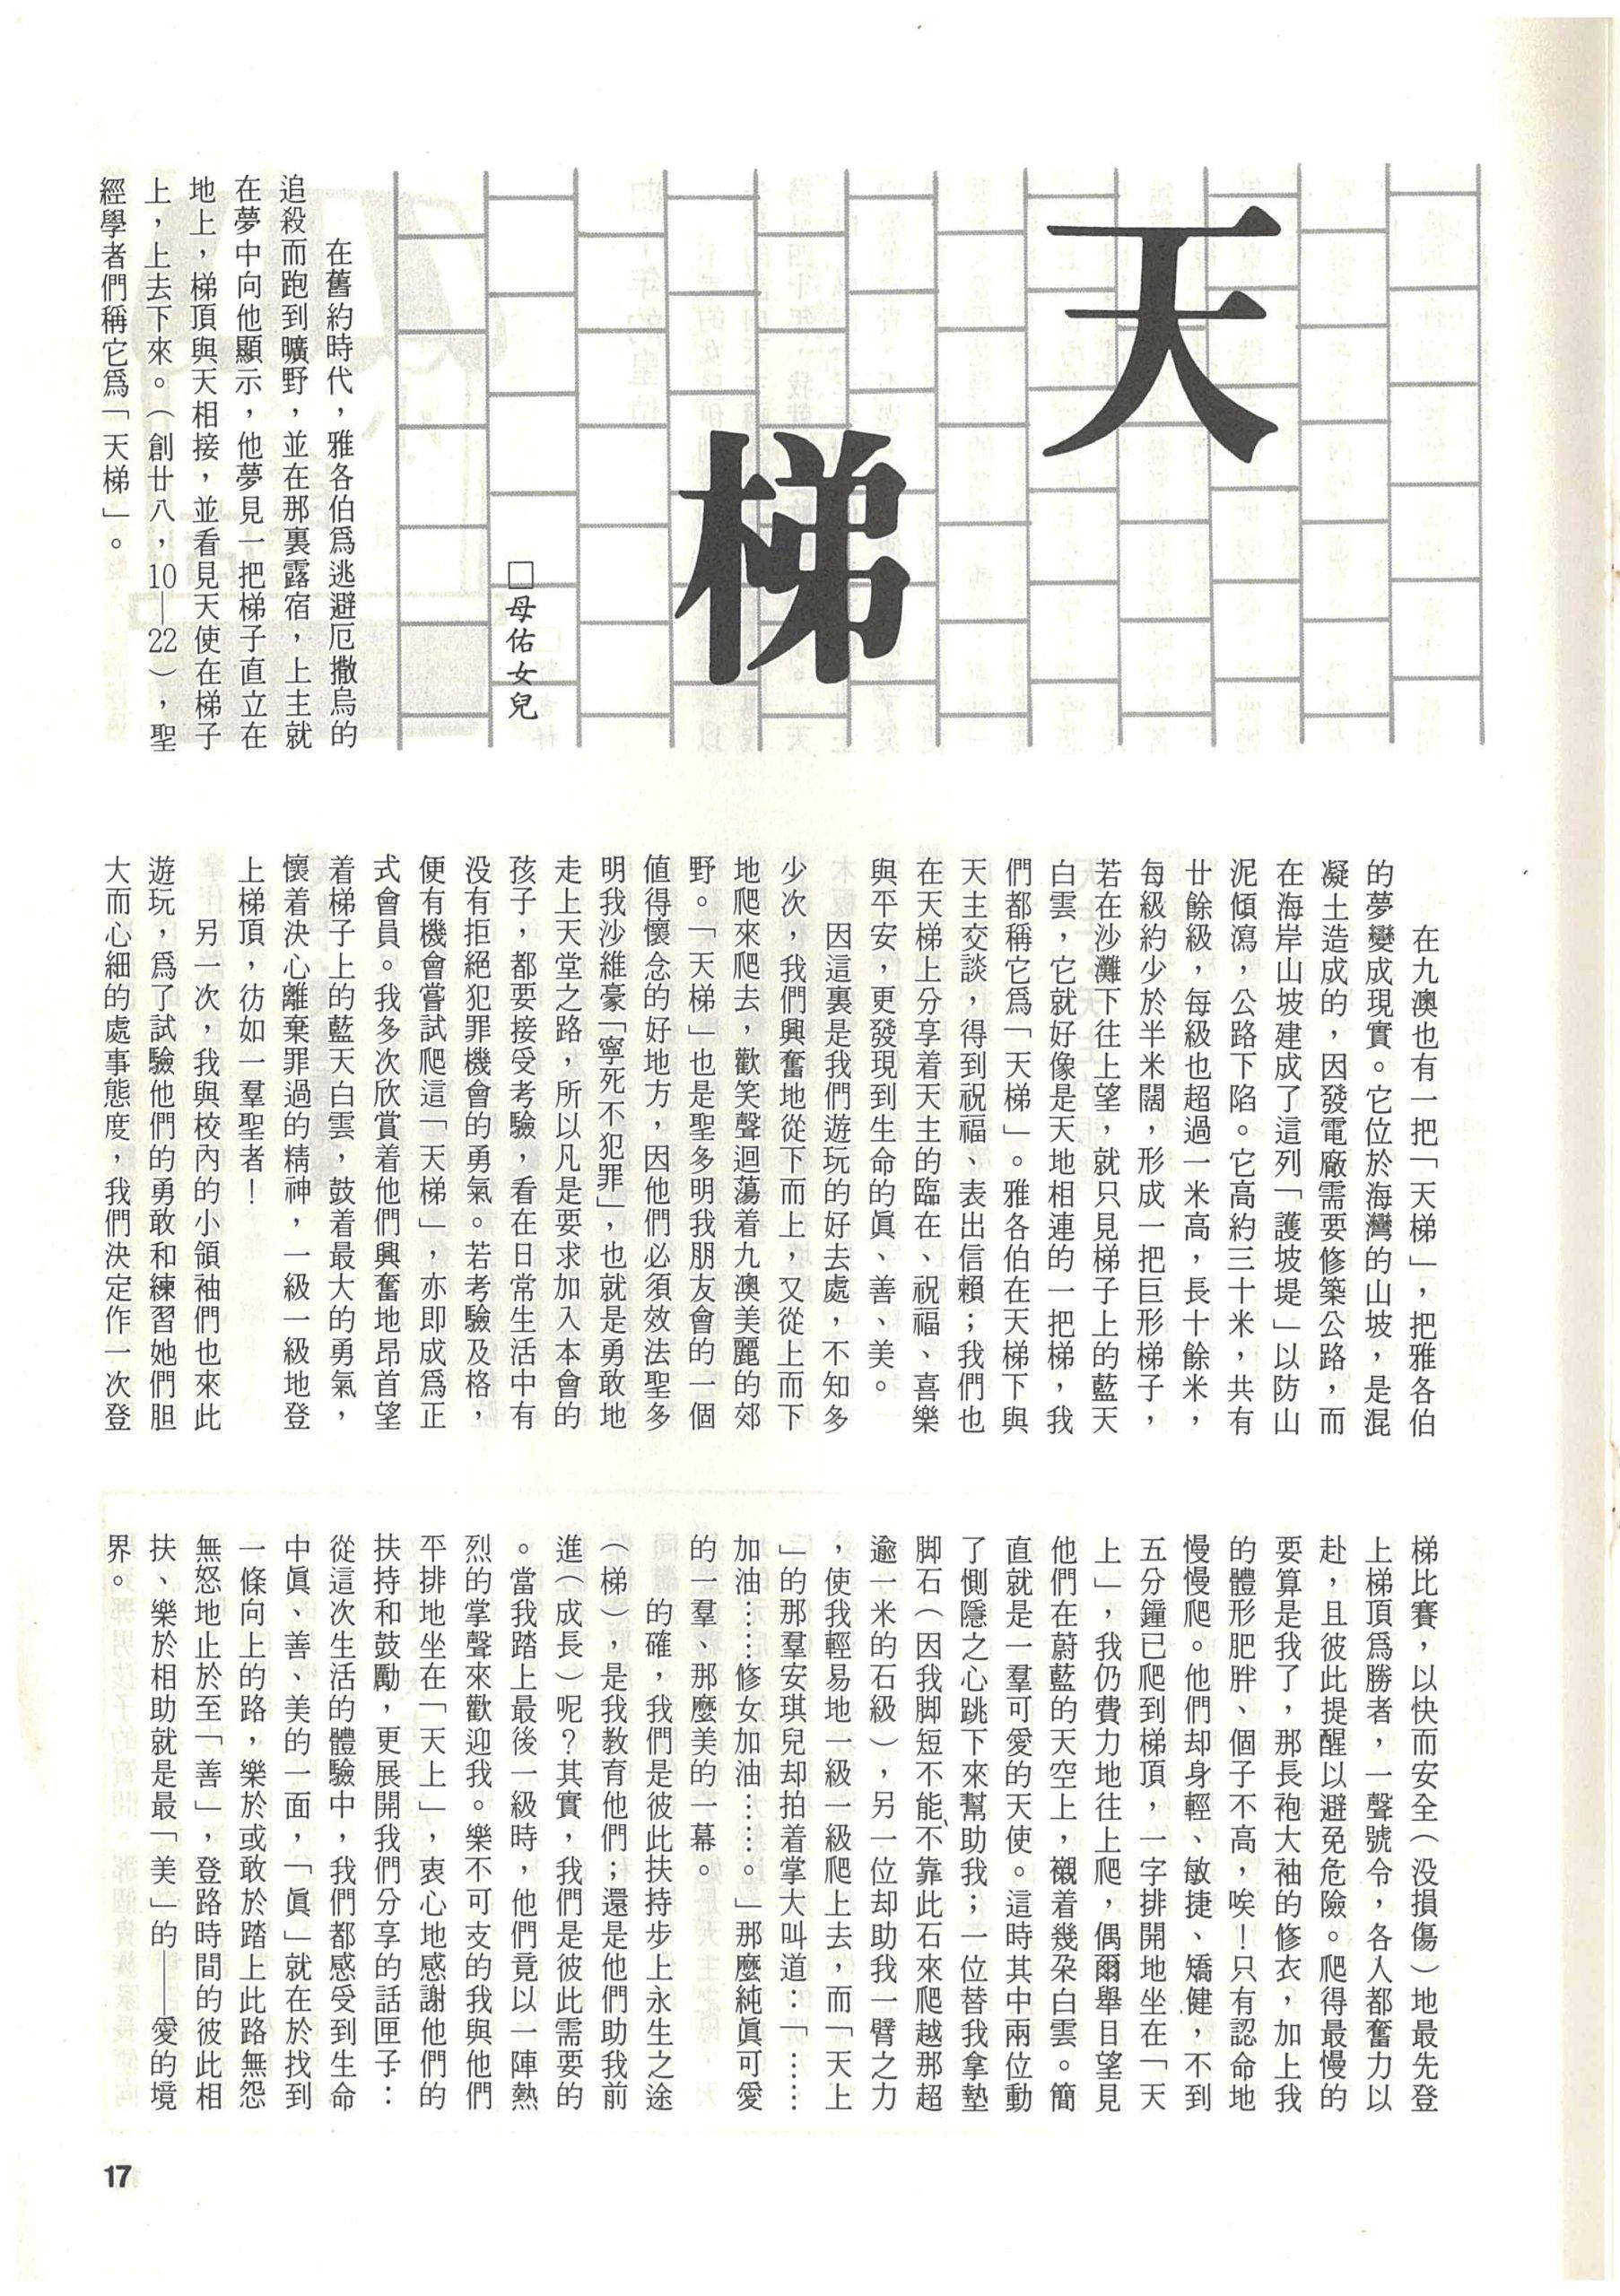 天梯
□母佑女兒
在舊約時代，雅各伯爲逃避厄撒烏的
追殺而跑到曠野，並在那裏露宿，上主就
在夢中向他顯示，他夢見一把梯子直立在
地上，梯頂與天相接，並看見天使在梯子
上，上去下來。（創廿八，10—22），聖
經學者們稱它爲「天梯」。
在九澳也有一把「天梯」，把雅各伯
的夢變成現實。它位於海灣的山坡，是混
凝土造成的，因發電廠需要修築公路，而
在海岸山坡建成了這列「護坡堤」以防山
泥傾瀉，公路下陷。它高約三十米，共有
廿餘級，每級也超過一米高，長十餘米，
每級約少於半米闊，形成一把巨形梯子，
若在沙灘下往上望，就只見梯子上的藍天
白雲，它就好像是天地相連的一把梯，我
們都稱它爲「天梯」。雅各伯在天梯下與
天主交談，得到祝福、表出信賴；我們也
在天梯上分享着天主的臨在、祝福、喜樂
與平安，更發現到生命的眞、善、美。
因這裏是我們遊玩的好去處，不知多
少次，我們興奮地從下而上，又從上而下
地爬來爬去，歡笑聲迴蕩着九澳美麗的郊
野。「天梯」也是聖多明我朋友會的一個
值得懷念的好地方，因他們必須效法聖多
明我沙維豪「寧死不犯罪」，也就是勇敢地
走上天堂之路，所以凡是要求加入本會的
孩子，都要接受考驗，看在日常生活中有
没有拒絕犯罪機會的勇氣。若考驗及格，
便有機會嘗試爬這「天梯」，亦即成爲正
式會員。我多次欣賞着他們興奮地昂首望
着梯子上的藍天白雲，鼓着最大的勇氣，
懷着決心離棄罪過的精神，一級一級地登
上梯頂，彷如一羣聖者！
另一次，我與校內的小領袖們也來此
遊玩，爲了試驗他們的勇敢和練習她們胆
大而心細的處事態度，我們決定作一次登
梯比賽，以快而安全（没損傷）地最先登
上梯頂爲勝者，一聲號令，各人都奮力以
赴，且彼此提醒以避免危險。爬得最慢的
要算是我了，那長袍大袖的修衣，加上我
的體形肥胖、個子不高，唉！只有認命地
慢慢爬。他們却身輕、敏捷、矯健，不到
五分鐘已爬到梯頂，一字排開地坐在「天
上」，我仍費力地往上爬，偶爾舉目望見
他們在蔚藍的天空上，襯着幾朶白雲。簡
直就是一羣可愛的天使。這時其中兩位動
了惻隱之心跳下來幫助我；一位替我拿墊
脚石（因我脚短不能不靠此石來爬越那超
逾一米的石級），另一位却助我一臂之力
，使我輕易地一級一級爬上去，而「天上
」的那羣安琪兒却拍着掌大叫道：「……
加油……修女加油……。」那麼純眞可愛
的一羣、那麼美的一幕。
的確，我們是彼此扶持步上永生之途
（梯），是我教育他們；還是他們助我前
進（成長）呢？其實，我們是彼此需要的
。當我踏上最後一級時，他們竟以一陣熱
烈的掌聲來歡迎我。樂不可支的我與他們
平排地坐在「天上」，衷心地感謝他們的
扶持和鼓勵，更展開我們分享的話匣子：
從這次生活的體驗中，我們都感受到生命
中眞、善、美的一面，「眞」就在於找到
一條向上的路，樂於或敢於踏上此路無怨
無怒地止於至「善」，登路時間的彼此相
扶、樂於相助就是最「美」的——愛的境
界。
17